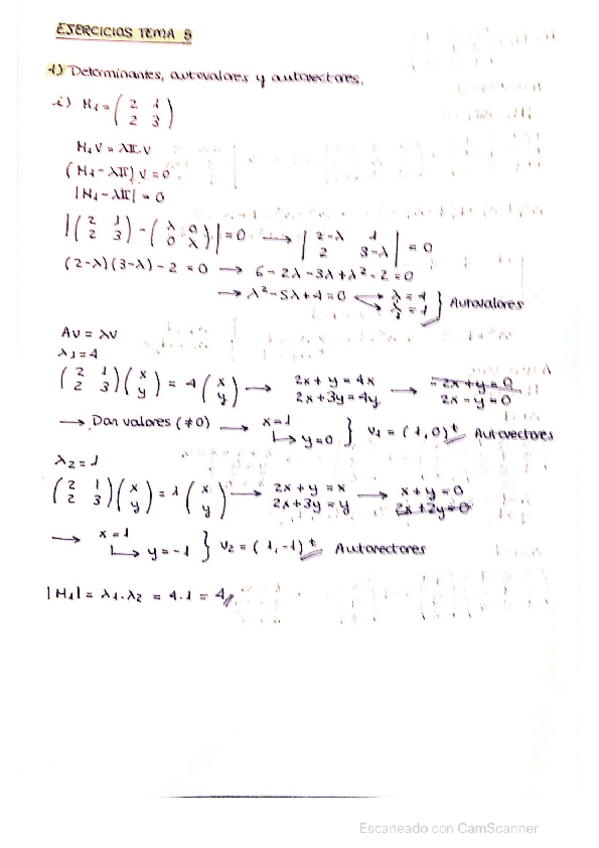 EJERCICIOS TEMA 8
1) Determinantes, autovalores y autovectores.
i) M₁ = ( 2 1 ; 2 3 )
M₁v = λII·v
(M₁ - λII) v = 0
|M₁ - λII| = 0
|( 2 1 ; 2 3 ) - ( λ 0 ; 0 λ )| = 0 → | 2-λ 1 ; 2 3-λ | = 0
(2-λ)(3-λ) - 2 = 0 → 6 - 2λ - 3λ + λ² - 2 = 0
→ λ² - 5λ + 4 = 0 λ = 4 λ = 1 } Autovalores
Av = λv
λ₁ = 4
( 2 1 ; 2 3 )( x ; y ) = 4 ( x ; y ) → 2x + y = 4x ; 2x + 3y = 4y → -2x + y = 0 ; 2x - y = 0
→ Dar valores (≠0) → x = 1 ↳ y = 0 } v₁ = (1, 0)ᵗ Autovectores
λ₂ = 1
( 2 1 ; 2 3 )( x ; y ) = 1 ( x ; y ) → 2x + y = x ; 2x + 3y = y → x + y = 0 ; 2x + 2y = 0
→ x = 1 ↳ y = -1 } v₂ = (1, -1)ᵗ Autovectores
|M₁| = λ₁·λ₂ = 4·1 = 4
Escaneado con CamScanner